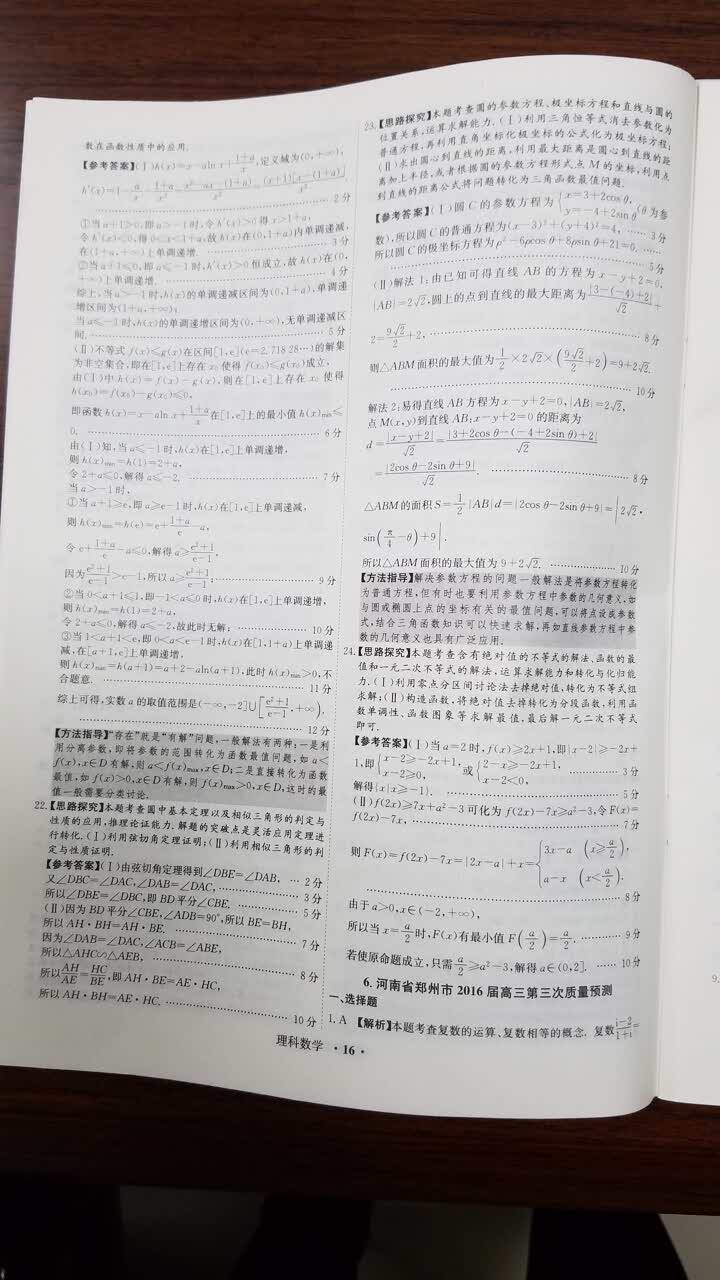 数在函数性质中的应用.
【参考答案】(Ⅰ)h(x)=x-aln x+(1+a)/x,定义域为(0,+∞),
h′(x)=1-a/x-(1+a)/x²=(x²-ax-(1+a))/x²=((x+1)[x-(1+a)])/x²
2分
①当a+1>0,即a>-1时,令h′(x)>0得x>1+a,
令h′(x)<0,得0<x<1+a,故h(x)在(0,1+a)内单调递减,
在(1+a,+∞)上单调递增. 3分
②当a+1≤0,即a≤-1时,h′(x)>0恒成立,故h(x)在(0,
+∞)上单调递增. 4分
综上,当a>-1时,h(x)的单调递减区间为(0,1+a),单调递
增区间为(1+a,+∞);
当a≤-1时,h(x)的单调递增区间为(0,+∞),无单调递减区
间. 5分
(Ⅱ)不等式f(x)≤g(x)在区间[1,e](e=2.718 28…)的解集
为非空集合,即在[1,e]上存在x₀使得f(x₀)≤g(x₀)成立,
由(Ⅰ)中h(x)=f(x)-g(x),则在[1,e]上存在x₀使得
h(x₀)=f(x₀)-g(x₀)≤0,
即函数h(x)=x-aln x+(1+a)/x在[1,e]上的最小值h(x)min≤
0. 6分
由(Ⅰ)知,当a≤-1时,h(x)在[1,e]上单调递增,
则h(x)min=h(1)=2+a,
令2+a≤0,解得a≤-2. 7分
当a>-1时,
①当a+1≥e,即a≥e-1时,h(x)在[1,e]上单调递减,
则h(x)min=h(e)=e+(1+a)/e-a,
令e+(1+a)/e-a≤0,解得a≥(e²+1)/(e-1),
因为(e²+1)/(e-1)>e-1,所以a≥(e²+1)/(e-1); 9分
②当0<a+1≤1,即-1<a≤0时,h(x)在[1,e]上单调递增,
则h(x)min=h(1)=2+a,
令2+a≤0,解得a≤-2,故此时无解; 10分
③当1<a+1<e,即0<a<e-1时,h(x)在[1,1+a)上单调递
减,在[a+1,e]上单调递增.
则h(x)min=h(a+1)=a+2-aln(a+1),此时h(x)min>0,不
合题意. 11分
综上可得,实数a的取值范围是(-∞,-2]∪[(e²+1)/(e-1),+∞).
12分
【方法指导】“存在”就是“有解”问题,一般解法有两种:一是利
用分离参数,即将参数的范围转化为函数最值问题,如a<
f(x),x∈D有解,则a<f(x)max,x∈D;二是直接转化为函数
最值,如f(x)>0,x∈D有解,则f(x)max>0,x∈D,这时的最
值一般需要分类讨论.
22.【思路探究】本题考查圆中基本定理以及相似三角形的判定与
性质的应用,推理论证能力.解题的突破点是灵活应用定理进
行转化.(Ⅰ)利用弦切角定理证明;(Ⅱ)利用相似三角形的判
定与性质证明.
【参考答案】(Ⅰ)由弦切角定理得到∠DBE=∠DAB, … 2分
又∠DBC=∠DAC,∠DAB=∠DAC, 3分
所以∠DBE=∠DBC,即BD平分∠CBE. 5分
(Ⅱ)因为BD平分∠CBE,∠ADB=90°,所以BE=BH,
所以AH·BH=AH·BE. 7分
因为∠DAB=∠DAC,∠ACB=∠ABE,
所以△AHC∽△AEB, 8分
所以AH/AE=HC/BE,即AH·BE=AE·HC,
所以AH·BH=AE·HC. 10分
23.【思路探究】本题考查圆的参数方程、极坐标方程和直线与圆的
位置关系,运算求解能力.(Ⅰ)利用三角恒等式消去参数化为
普通方程,再利用直角坐标化极坐标的公式化为极坐标方程;
(Ⅱ)求出圆心到直线的距离,利用最大距离是圆心到直线的距
离加上半径,或者根据圆的参数方程形式点M的坐标,利用点
到直线的距离公式将问题转化为三角函数最值问题.
【参考答案】(Ⅰ)圆C的参数方程为{x=3+2cos θ, y=-4+2sin θ(θ为参
数),所以圆C的普通方程为(x-3)²+(y+4)²=4, …… 3分
所以圆C的极坐标方程为ρ²-6ρcos θ+8ρsin θ+21=0. ……
5分
(Ⅱ)解法1:由已知可得直线AB的方程为x-y+2=0,
|AB|=2√2,圆上的点到直线的最大距离为|3-(-4)+2|/√2+
2=9√2/2+2, 8分
则△ABM面积的最大值为1/2×2√2×(9√2/2+2)=9+2√2.
10分
解法2:易得直线AB方程为x-y+2=0,|AB|=2√2,
点M(x,y)到直线AB:x-y+2=0的距离为
d=|x-y+2|/√2=|3+2cos θ-(-4+2sin θ)+2|/√2
=|2cos θ-2sin θ+9|/√2. 8分
△ABM的面积S=1/2|AB|d=|2cos θ-2sin θ+9|=|2√2·
sin(π/4-θ)+9|.
所以△ABM面积的最大值为9+2√2. 10分
【方法指导】解决参数方程的问题一般解法是将参数方程转化
为普通方程,但有时也要利用参数方程中参数的几何意义,如
与圆或椭圆上点的坐标有关的最值问题,可以将点设成参数
式,结合三角函数知识可以快速求解,再如直线参数方程中参
数的几何意义也具有广泛应用.
24.【思路探究】本题考查含有绝对值的不等式的解法、函数的最
值和一元二次不等式的解法,运算求解能力和转化与化归能
力.(Ⅰ)利用零点分区间讨论法去掉绝对值,转化为不等式组
求解;(Ⅱ)构造函数,将绝对值去掉转化为分段函数,利用函
数单调性、函数图象等求解最值,最后解一元二次不等式
即可.
【参考答案】(Ⅰ)当a=2时,f(x)≥2x+1,即|x-2|≥-2x+
1,即{x-2≥-2x+1, x-2≥0,或{2-x≥-2x+1, x-2<0, 3分
解得{x|x≥-1}. 5分
(Ⅱ)f(2x)≥7x+a²-3可化为f(2x)-7x≥a²-3,令F(x)=
f(2x)-7x, 7分
则F(x)=f(2x)-7x=|2x-a|+x={3x-a (x≥a/2), a-x (x<a/2).
8分
由于a>0,x∈(-2,+∞),
所以当x=a/2时,F(x)有最小值F(a/2)=a/2. 9分
若使原命题成立,只需a/2≥a²-3,解得a∈(0,2]. …… 10分
6. 河南省郑州市2016届高三第三次质量预测
一、选择题
1. A 【解析】本题考查复数的运算、复数相等的概念. 复数(i-2)/(1+i)=
理科数学 ·16·
9.